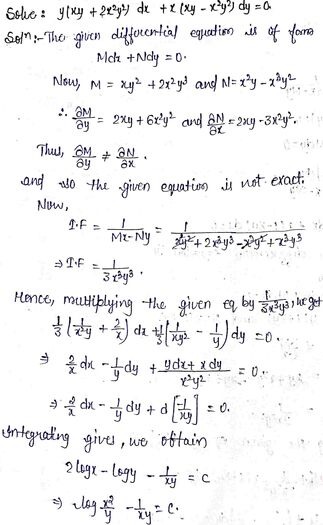 Solve: y(xy + 2x²y²) dx + x(xy - x²y²) dy = 0.
Solⁿ:- The given differential equation is of form
Mdx + Ndy = 0.
Now, M = xy² + 2x²y³ and N = x²y - x³y²
∴ ∂M/∂y = 2xy + 6x²y² and ∂N/∂x = 2xy - 3x²y².
Thus, ∂M/∂y ≠ ∂N/∂x.
and so the given equation is not exact.
Now,
I.F = 1/(Mx-Ny) = 1/(x²y² + 2x³y³ - x²y² + x³y³)
⇒ I.F = 1/(3x³y³).
Hence, multiplying the given eq by 1/(3x³y³), we get
1/3 (1/(x²y) + 2/x) dx + 1/3 (1/(xy²) - 1/y) dy = 0.
⇒ 2/x dx - 1/y dy + (ydx + xdy)/(x²y²) = 0.
⇒ 2/x dx - 1/y dy + d[-1/(xy)] = 0.
Integrating gives, we obtain
2 log x - log y - 1/(xy) = C
⇒ log x²/y - 1/(xy) = C.